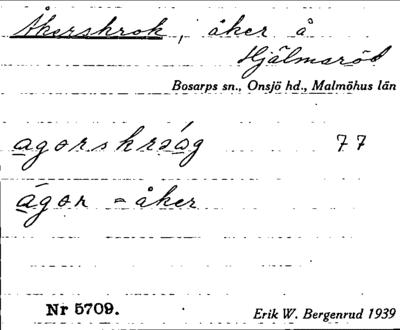 Åkerskrok, åker å
Hjälmaröd
Bosarps sn., Onsjö hd., Malmöhus län
agorskråág 77
ágor = åker
Nr 5709.
Erik W. Bergenrud 1939